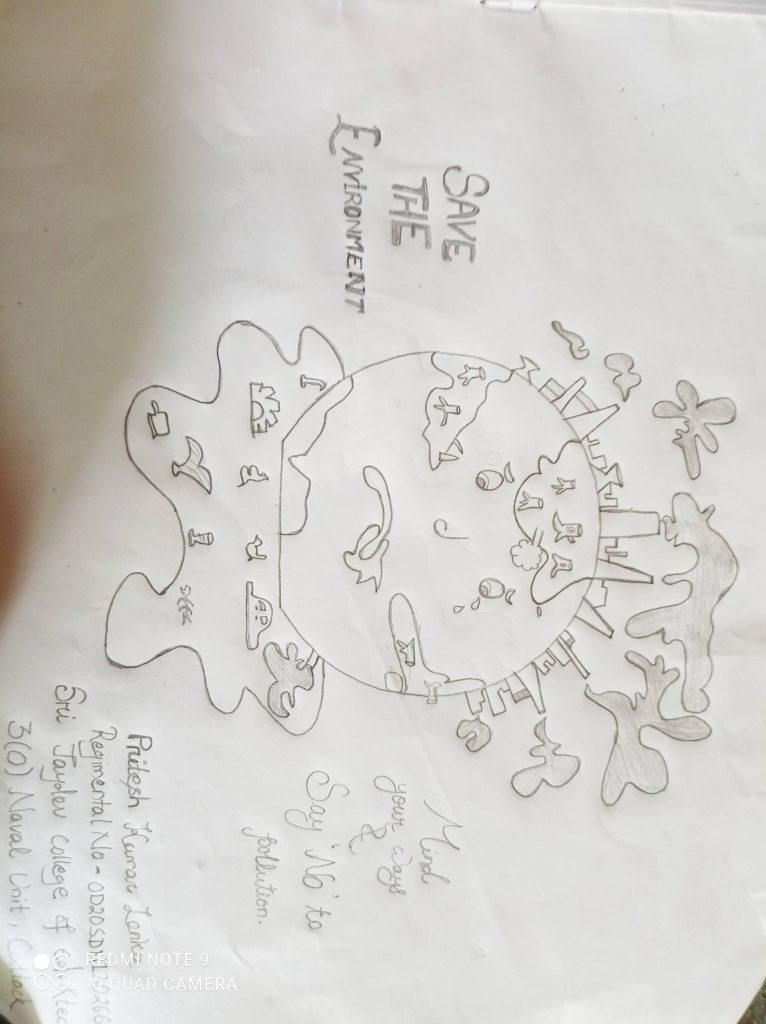 SAVE
THE
ENVIRONMENT
Mind
your ways
&
Say 'No' to
pollution.
Pritesh Kumar Lenka
Regimental No -
Sri Jaydev College of
3(O) Naval Unit, Cuttack
REDMI NOTE 9
AI QUAD CAMERA